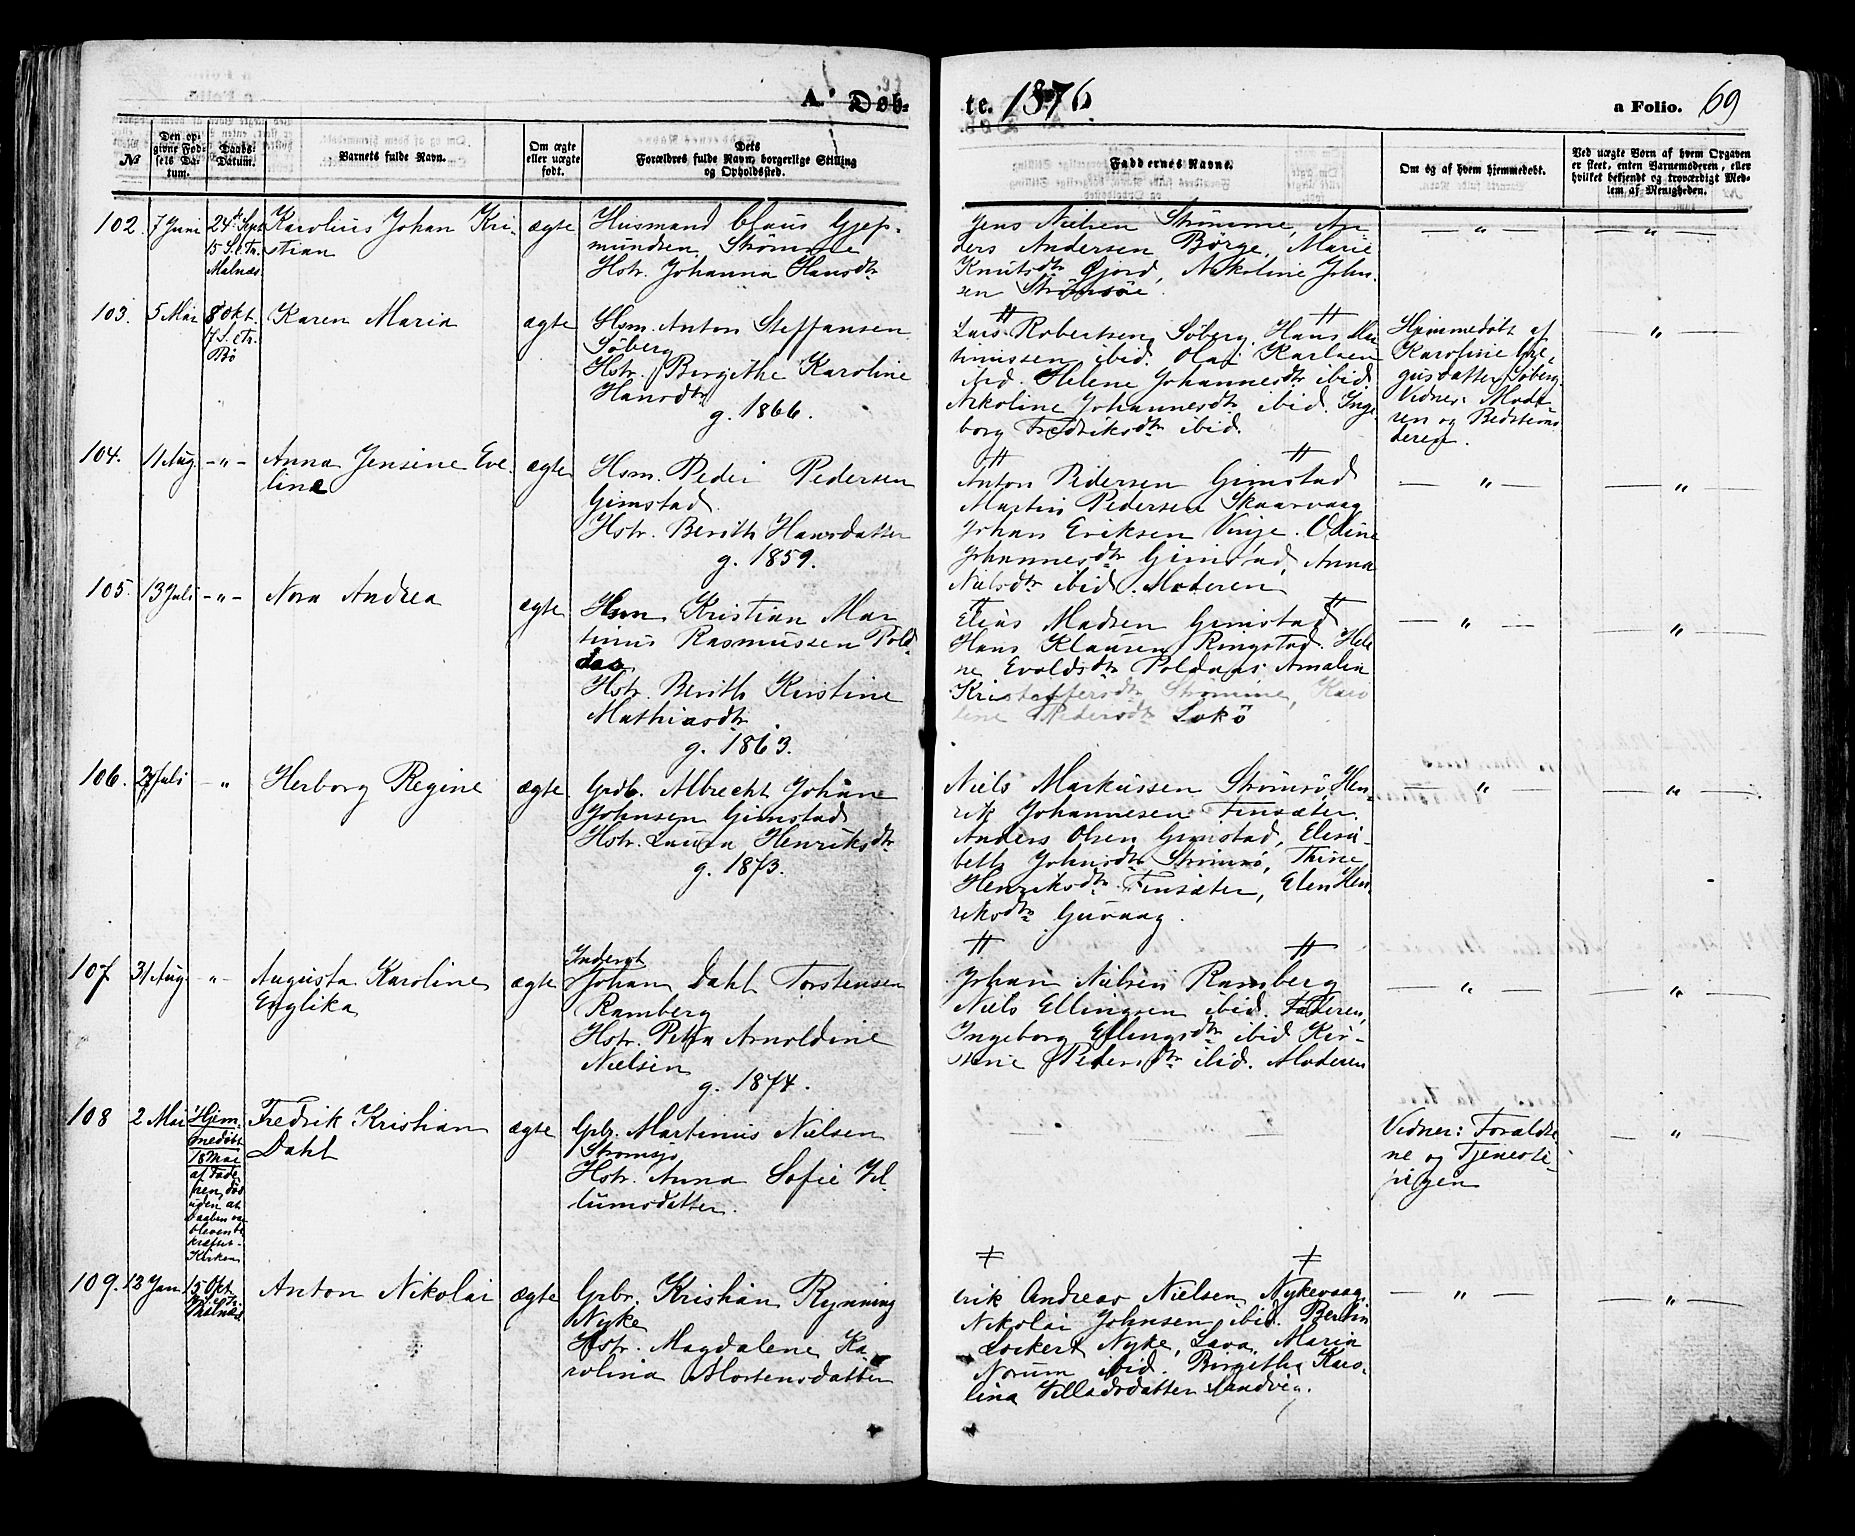 A. Døb-
te. 1876
a Folio. 69
№
Den op-
givne Fød-
sels Da-
tum.
Daabs-
Datum.
Barnets fulde Navn.
Om ægte
eller uægte
født.
Dets
Forældres fulde Navn, borgerlige Stilling
og Opholdssted.
Faddernes Navne.
Om og af hvem hjemmedøbt.
Ved uægte Børn af hvem Opgaven
er skeet, enten Barnemoderen, eller
hvilket bekjendt og troværdigt Med-
lem af Menigheden.
102. 7 Juni
24de Sept
15 S. e. Tr.
Malnæs
Karolius Johan Kri-
stian
ægte
Husmand Claus Gjep-
mundsen Strømme
Hstr. Johanna Hansdtr
Jens Nielsen Strømme, An-
ders Andersen Börge, Marie
Knutsdtr Gjord, Nikoline John-
sen Strømsöe.
— " — — " —
103. 5 Mai
8 Okt.
17 S. e. Tr.
Bö
Karen Maria
ægte
Hsm. Anton Steffansen
Söberg
Hstr. Bergithe Karoline
Hansdtr
g. 1866.
Lars Robertsen Söberg. Hans
ibid. Olai Karlsen
ibid. Helene Johannesdtr ibid
Nikoline Johannesdtr ibid. Inge-
borg Fredriksdtr ibid.
Hjemmedøbt af
Karoline
Söberg
Vidner: Mode-
ren og Bedstemo-
deren.
— " —
104. 11 Aug. - " -
Anna Jensine Eve-
line
ægte
Hsm. Peder Pedersen
Gimstad
Hstr. Berith Hansdatter
g. 1859.
Anton Pedersen Gimstad
Martin Pedersen Skaarvaag
Johan Eriksen Vinje. Odine
Johannesdtr Gimstad, Anna
Nielsdtr ibid. Moderen
— " — — " —
105. 13 Juli - " -
Nora Andrea
ægte
Hsm Kristian Mar
tinus Rasmussen Pold-
das
Hstr. Berith Kirstine
Mathiasdtr.
g. 1863.
Elias Madsen Gimstad
Hans Klausen Ringstad. Hele
ne Evaldsdtr Poldaas, Amalia
Kristoffersdtr Strømme, Karo
line Pedersdtr Lokö
— " — — " —
106. 27 Juli - "
Herborg Regine
ægte
Grdb. Albrecht Johan
Johnsen Gimstad
Hstr. Laura Henriksdtr
g. 1873.
Niels Markussen Strömsö, Hen-
rik Johannesen Finsæter
Anders Olsen Gimstad, Elisa-
beth Johnsdtr Strömsö, Thine
Henriksdtr Finsæter, Elen Hen-
riksdtr Guvaag.
— " — — " —
107 31 Aug. - " -
Augusta Karoline
Englika
ægte
Inderst
Johan Dahl Torstensen
Ramberg
Hstr. Petra Arnoldine
Nielsen
g. 1874.
Johan Nilsen Ramberg
Niels Ellingsen ibid. Faderen,
Ingeborg Ellingsdtr ibid Kir-
stine Pedersdtr ibid. Moderen
— " — — " —
108 2 Mai
Hjem-
medøbt
18 Mai
af Fade-
ren, död
uden at
Daaben var
bleven be-
kræftet i
Kirken
Fredrik Kristian
Dahl
ægte
Grbr. Martinus Nielsen
Strømsjø
Hstr. Anna Sofie Vil-
lumsdatter.
Vidner: Foræld-
ne og Tjeneste-
pigen
— " —
109. 13 Jan.
15 Okt.
Malnæs
Anton Nikolai
ægte
Grbr. Kristian Rynning
Nyke
Hstr. Magdalene Ka
rolina Mortensdatter
Erik Andreas Nielsen, Nykevaag
Nikolai Johnsen ibid. Bertin
Lockert Nyke, Lava Maria
Norum ibid. Birgitha Karo-
lina Villadsdatter Sandvig.
— " — — " —